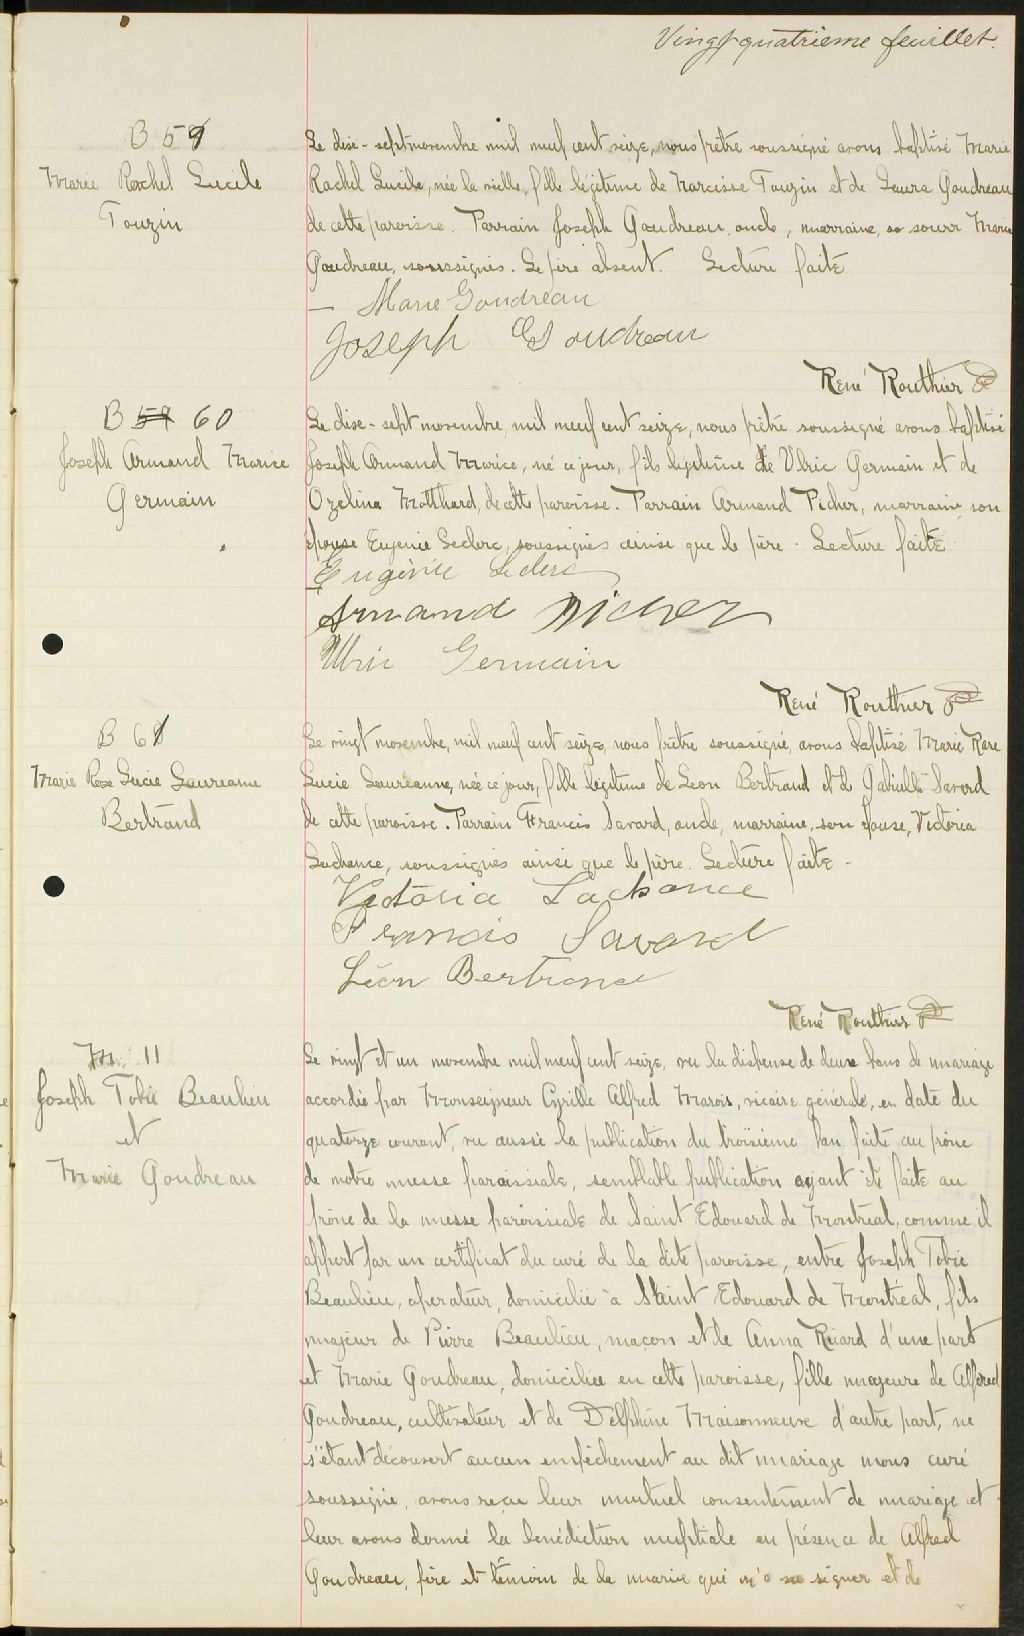 Vingt quatrieme feuillet.
B 59
Marie Rachel Lucile
Touzin
Le dix-sept novembre mil neuf cent seize, nous prêtre soussigné avons baptisé Marie
Rachel Lucile, née la veille, fille légitime de Narcisse Touzin et de Laura Goudreau
de cette paroisse. Parrain Joseph Goudreau, oncle, marraine, sa soeur Marie
Goudreau, soussignés. Le père absent. Lecture faite
Marie Goudreau
Joseph Goudreau
René Routhier
B 59 60
Joseph Armand Marice
Germain
Le dix-sept novembre, mil neuf cent seize, nous prêtre soussigné avons baptisé
Joseph Armand Marice, né ce jour, fils legitime de Ulric Germain et de
Ozelina Matthard, de cette paroisse. Parrain Armand Picher, marraine, son
épouse Eugenie Leclerc, soussignés ainsi que le père. Lecture faite
Eugénie Leclerc
Armand Picher
Ulric Germain
René Routhier
B 61
Marie Rose Lucie Laureanne
Bertrand
Le vingt novembre, mil neuf cent seize, nous prêtre soussigné, avons baptisé Marie Rose
Lucie Laureanne, née ce jour, fille légitime de Leon Bertrand et de Gabrielle Savard
de cette paroisse. Parrain Francis Savard, oncle, marraine, son épouse, Victoria
Lachance, soussignés ainsi que le père. Lecture faite.
Victoria Lachance
Francois Savard
Léon Bertrand
René Routhier
M. 11
Joseph Tobie Beaulieu
et
Marie Goudreau
Le vingt et un novembre mil neuf cent seize, vu la dispense de deux bans de mariage
accordée par Monseigneur Cyrille Alfred Marois, vicaire générale, en date du
quatorze courant, vu aussi la publication du troisième ban faite au prône
de notre messe paroissiale, semblable publication ayant été faite au
prône de la messe paroissiale de Saint Edouard de Montréal, comme il
appert par un certificat du curé de la dite paroisse, entre Joseph Tobie
Beaulieu, operateur, domicilié à Saint Edouard de Montréal, fils
majeur de Pierre Beaulieu, maçon et de Anna Ricard d'une part
et Marie Goudreau, domiciliée en cette paroisse, fille majeure de Alfred
Goudreau, cultivateur et de Delphine Maisonneuve d'autre part, ne
s'étant découvert aucun empêchement au dit mariage nous curé
soussigné, avons reçu leur mutuel consentement de mariage et
leur avons donné la bénédiction nuptiale en présence de Alfred
Goudreau, père et témoin de la mariée qui n'a su signer et de